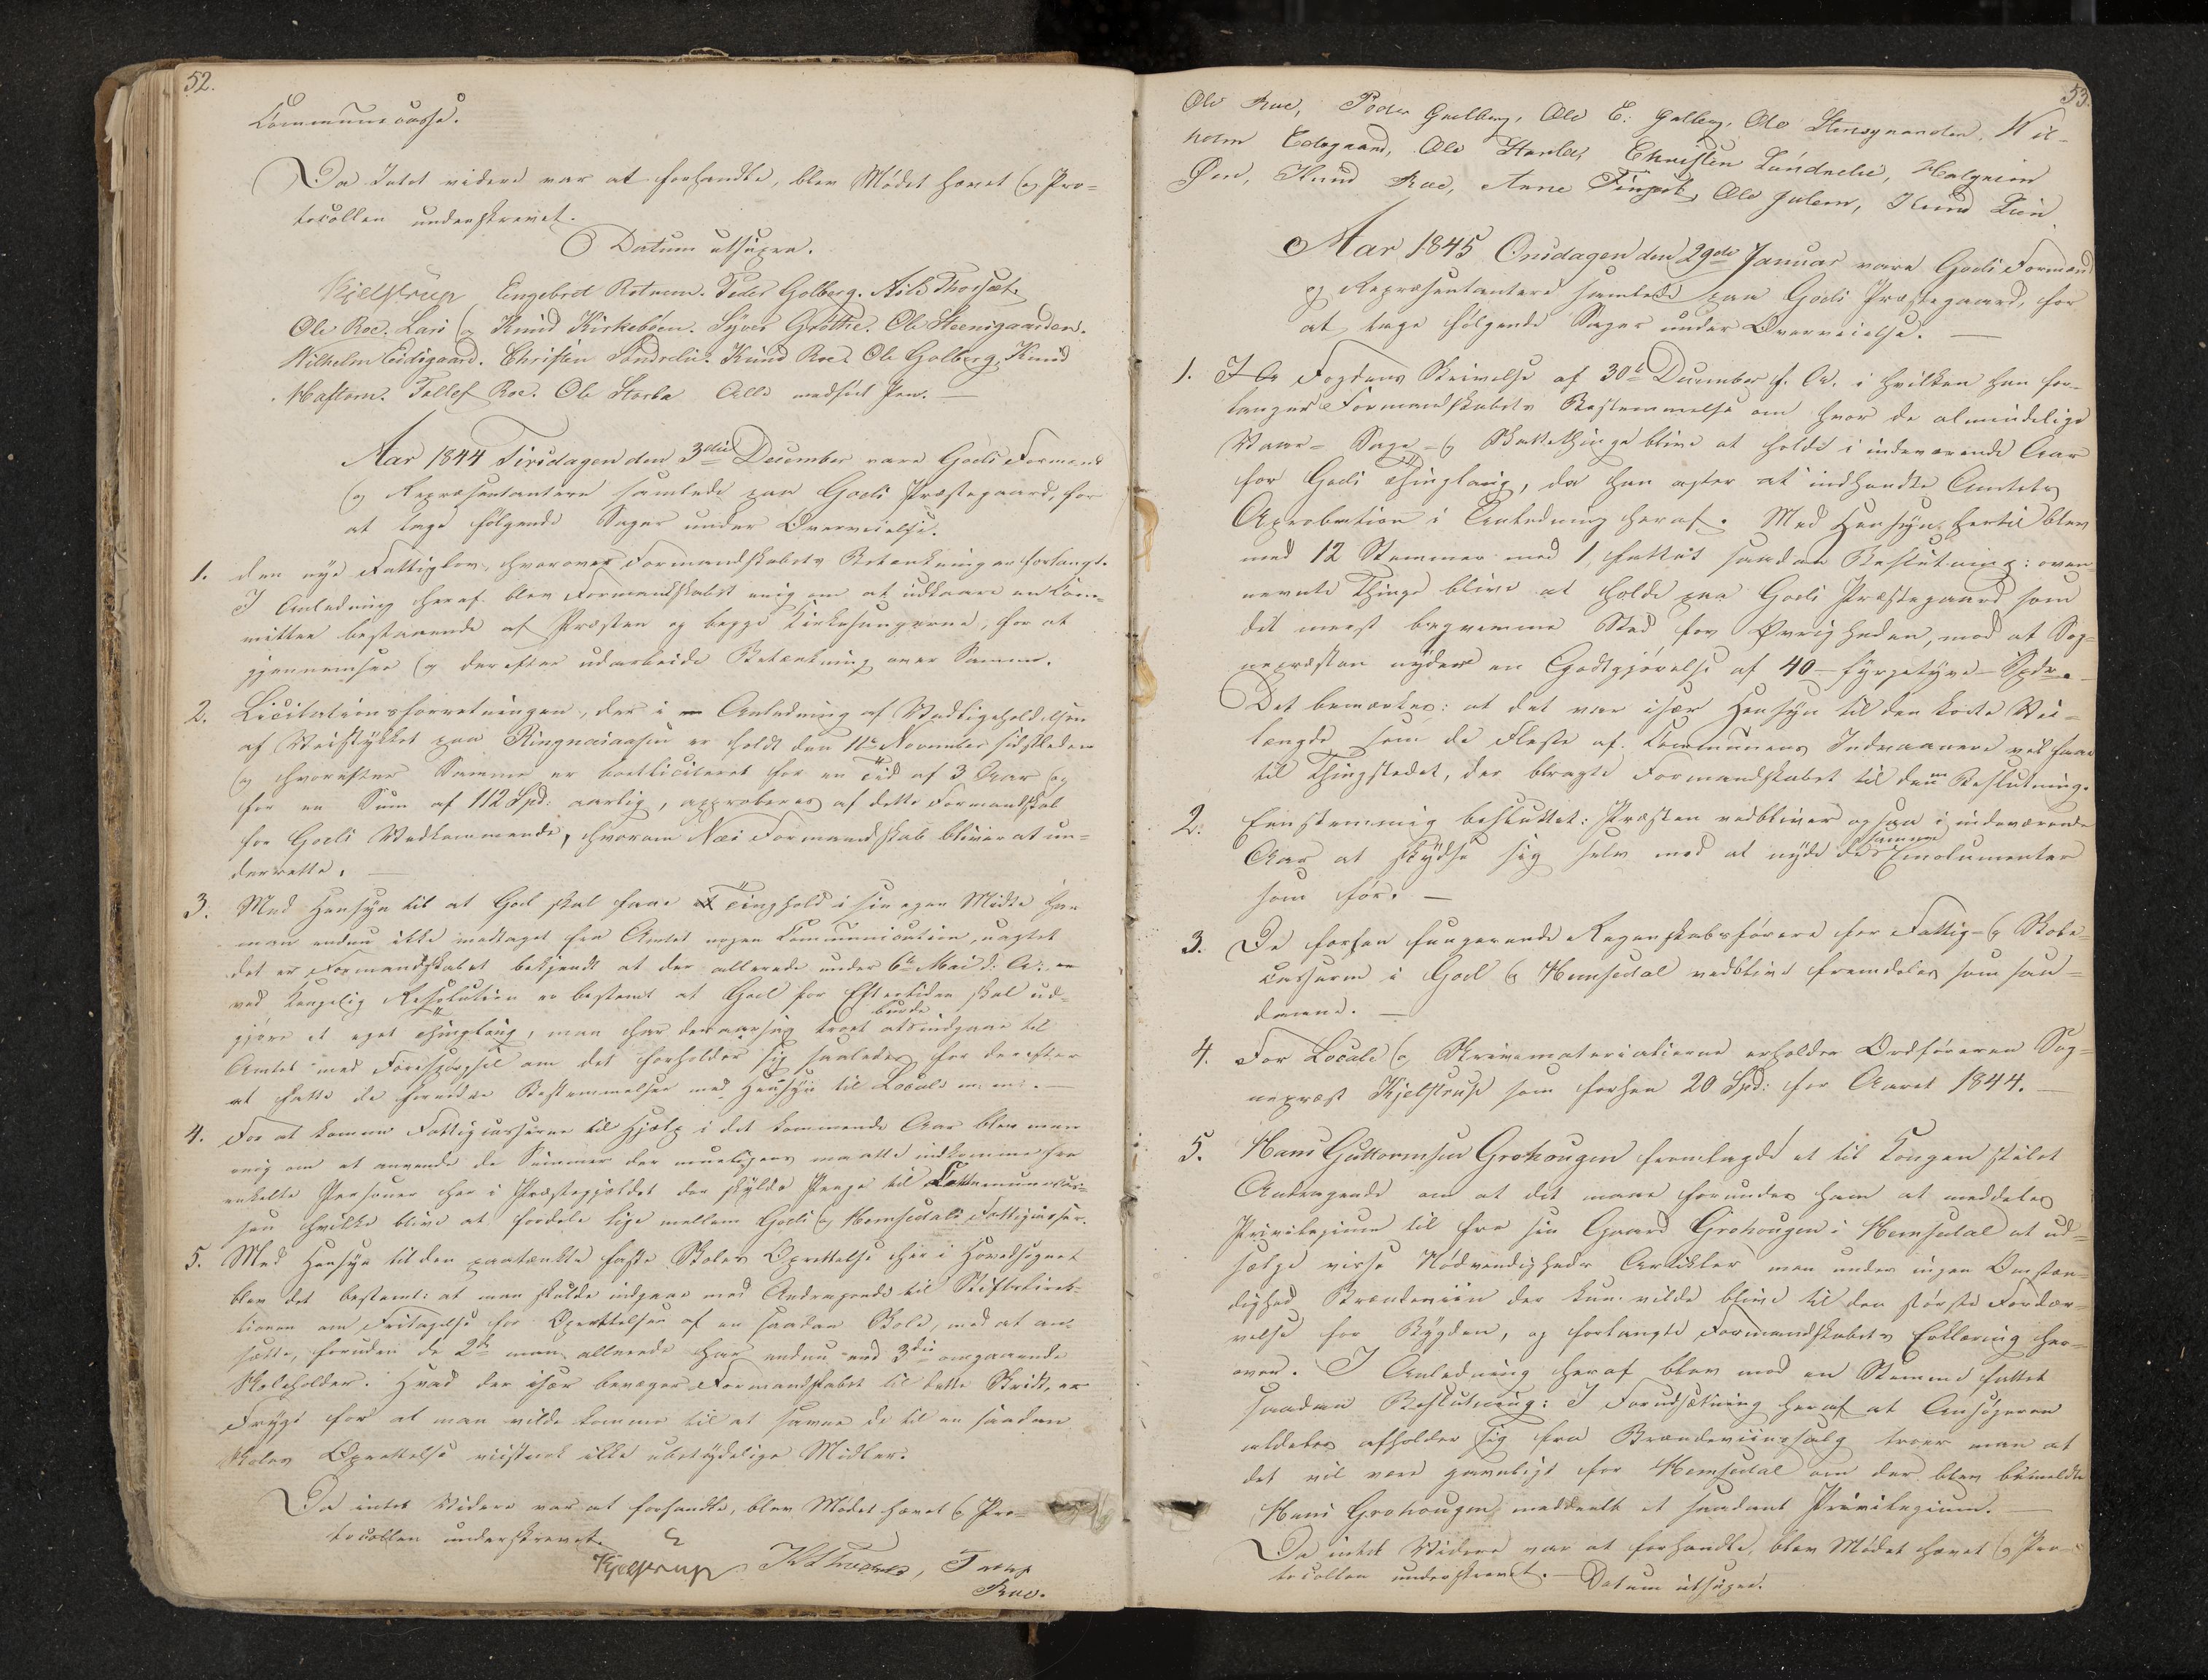 52.
Communecasse.
Da Intet videre var at forhandle, blev Mödet hævet og Pro=
tocollen underskrevet.
Datum utsupra.
Kjelstrup Engebret Rotnem. Peder Golberg. Nils Thorset.
Ole Roe. Lars og Knud Kirkeböen. Syver Gröthe. Ole Steensgaarden.
Wilhelm Eidsgaard. Christen Söndrelie. Knud Roe. Ole Golberg. Knud
Haftorn. Tollef Roe. Ole Storla Alle medført Pen.
Aar 1844 Tirsdagen den 3die December vare Goels Formænd
og Repræsentantere samlede paa Goels Præstegaard, for
at tage følgende Sager under Overveielse.
1. den nye Fattiglov, hvorover Formandskabets Betænkning er forlangt.
I Anledning heraf blev Formandskabet enig om at udkaare en Kom=
mittee bestaaende af Præsten og begge Kirkesangerne, for at
gjennemsee og derefter udarbeide Betænkning over Samme.
2. Licitationsforretningen, der i Anledning af Vedligeholdelsen
af Veistykket paa Ringneiaasen er holdt den 11te November sidstleden
og hvorefter Samme er bortliciteret for en Tid af 3 Aar og
for en Sum af 112 Spd: aarlig, approberes af dette Formandskab
for Goels Vedkommende, hvorom Næs Formandskab bliver at un=
derrette.
3. Med Hensyn til at Goel skal faae et Tinghold i sin egen Midte har
man endnu ikke modtaget fra Amtet nogen Communication, uagtet
det er Formandskabet bekjendt at der allerede under 6te Mai d: A: er
ved kongelig Resolution er bestemt at Goel for Eftertiden skal ud=
gjøre et eget Thinglaug, man har desaarsag troet at burde indgaae til
Amtet med Forespørgsel om det forholder sig saaledes for derefter
at fatte de fornødne Bestemmelser med Hensyn til Locale m. m.
4. For at komme Fattigcasserne til Hjælp i det kommende Aar blev man
enig om at anvende de Summer der muligens maatte indkomme fra
enkelte Personer her i Præstegjeldet der skylde Penge til Communecas=
sen hvilke blive at fordele lige mellem Goels og Hemsedals Fattigcasser.
5. Med Hensyn til den paatænkte faste Skoles Oprettelse her i Hovedsognet
blev det bestemt: at man skulde indgaae med Andragende til Stiftsdirek=
tionen om Fritagelse for Oprettelsen af en saadan Skole, mod at an=
sætte, foruden de 2de man allerede har endnu en 3die omgaaende
Skoleholder. Hvad der især bevæger Formandskabet til dette Skridt, er
Frygt for at man vilde komme til at savne de til en saadan
Skoles Oprettelse vistnok ikke ubetydelige Midler.
Da intet Videre var at forhandle, blev Mödet hævet og Pro=
tocollen underskrevet.
Kjelstrup
Roe.
53.
Ole Roe, Peder Guelberg, Ole E: Golberg, Ole Stensgaarden, Wil=
holm Eidsgaard, Ole Storla, Christen Sundrelie, Halgrim
Øen, Knud Roe, Arne, Ole Golem, Knud
Aar 1845 Onsdagen den 29de Januar vare Goels Formænd
og Repræsentantere samlede paa Goels Præstegaard, for
at tage følgende Sager under Overveielse.
1. Fogdens Skrivelse af 30te December f. A. i hvilken han for=
langer Formandskabets Bestemmelse om hvor de almindelige
Vaar= Sage= og Skattethinge blive at holde i indeværende Aar
for Goels Thinglaug, da han agter at indhendte Amtets
Aprobation i Anledning heraf. Med Hensyn hertil blev
med 12 Stemmer mod 1, fattet saadan Beslutning: oven=
nævnte Thinge blive at holde paa Goels Præstegaard som
det meest beqvemme Sted for Øvrigheden, mod at Sog=
nepræsten nyder en Godtgjørelse af 40 – fyrgetyve – Spdr.
Det bemærkes: at det var især Hensyn til den korte Vei=
længde som de Fleste af Communens Indvaanere vil faae
til Thingstedet, der bragte Formandskabet til denne Beslutning.
2. Eenstemmig besluttet: Præsten vedbliver ogsaa i indeværende
Aar at skydse sig selv mod at nyde de samme Emolumenter
som før.
3. De forhen fungerende Regnskabsførere for Fattig= og Skole=
casserne i Goel og Hemsedal vedblive fremdeles som saa=
danne.
4. For Locale og Skrivematerialierne erholder Ordføreren Sog=
nepræst Kjelstrup som forhen 20 Spd: for Aaret 1844.
5. Hans Guttormsen Grøhougen fremlagde et til Kongen stilet
Andragende om at det maae forundes ham at meddeles
Privilegium til fra sin Gaard Grøhougen i Hemsedal at ud=
sælge visse Nödvendigheds Artikler men under ingen Omstæn=
dighed Brændeviin der kun vilde blive til den største Fordær=
velse for Bygden, og forlangte Formandskabets Erklæring her=
over. I Anledning heraf blev mod en Stemme fattet
saadan Beslutning: I Forudsætning heraf at Ansøgeren
aldeles afholder sig fra Brændeviinssalg troer man at
det vil være gavnligt for Hemsedal om der blev bemeldte
Hans Grøhougen meddeelt et saadant Privilegium.
Da intet Videre var at forhandle, blev Mödet hævet og Pro=
tocollen underskrevet. – Datum utsupra.